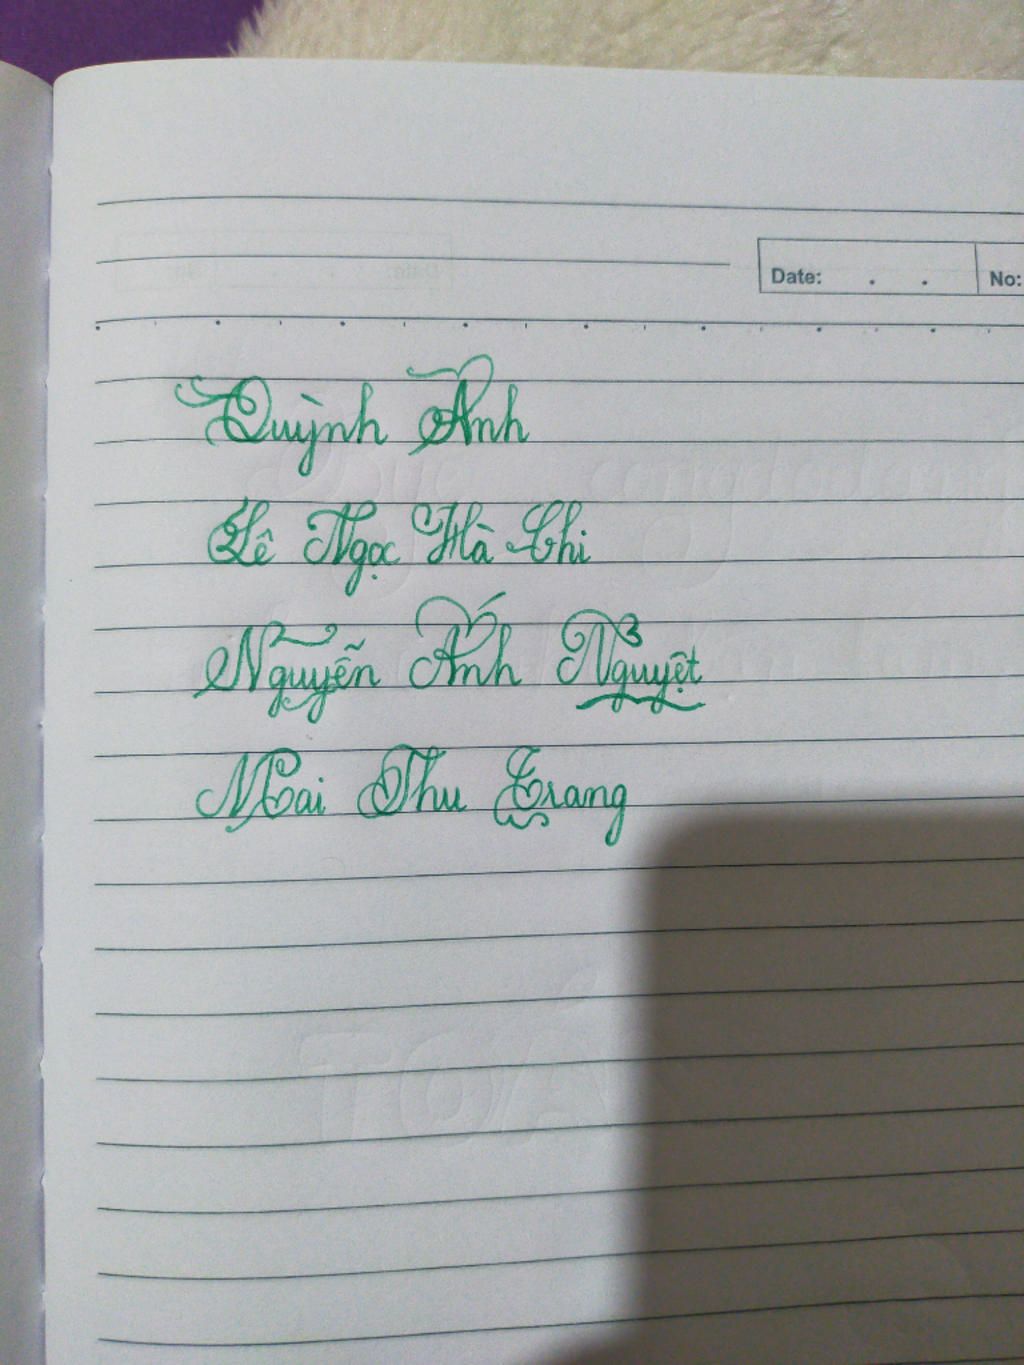 Date: . . No:
Quỳnh Anh
Lê Ngọc Hà Chi
Nguyễn Ánh Nguyệt
Mai Thu Trang